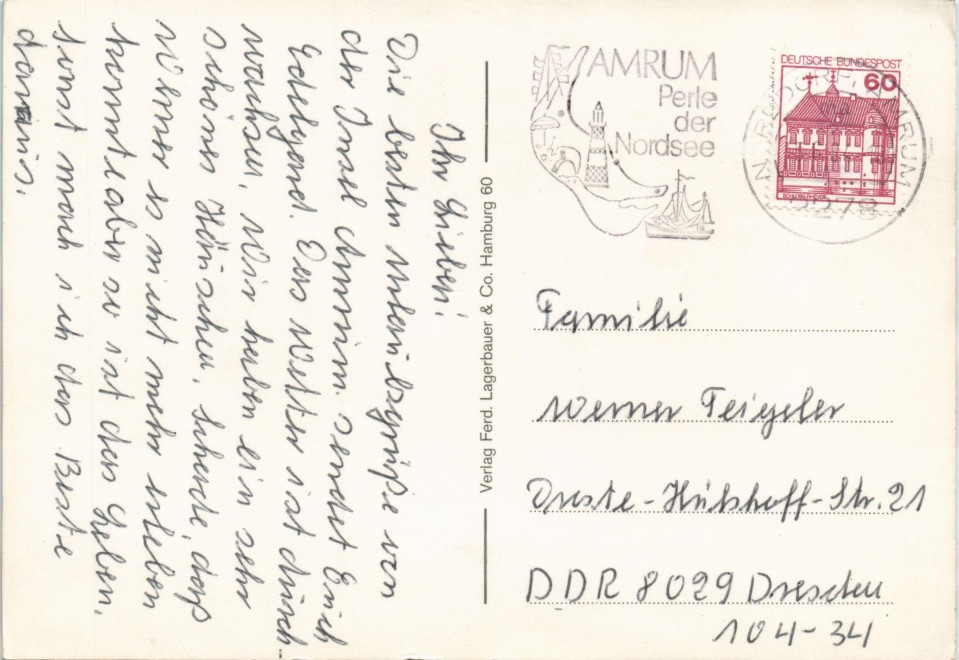 Ihr Lieben!
Die besten Urlaubsgrüße von
der Insel Amrum sendet Euch
Das Wetter ist durch-
wachsen. Wir haben ein sehr
schönes Häuschen. Schade, daß
Werner es nicht mehr erleben
konnte, aber so ist das Leben.
Sonst mach ich das Beste
daraus.
Verlag Ferd. Lagerbauer & Co. Hamburg 60
AMRUM
Perle
der
Nordsee
DEUTSCHE BUNDESPOST
60
AMRUM
Familie
Werner Teigeler
Droste-Hülshoff-Str. 21
DDR 8029 Dresden
104-34